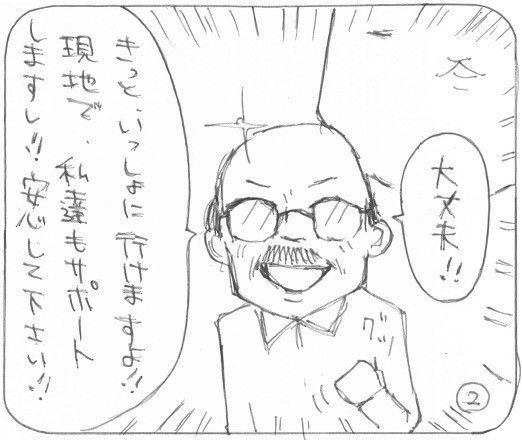 大丈夫!!
きっと、いっしょに行けますよ!!
現地で、私達もサポート
しますし!!安心して下さい!!
グッ
2